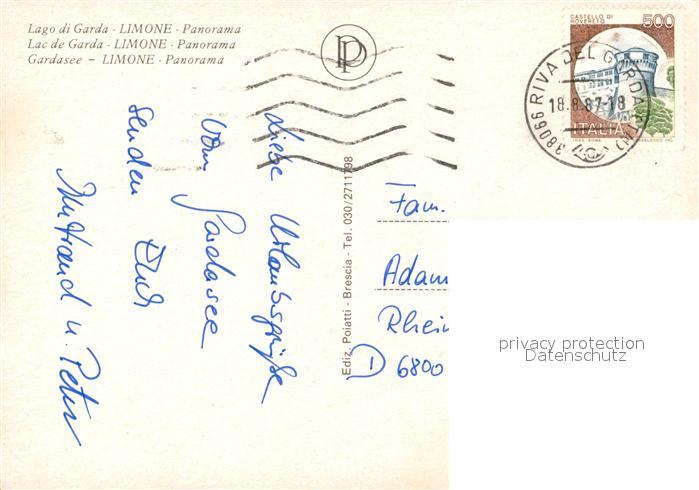 Lago di Garda - LIMONE - Panorama
Lac de Garda - LIMONE - Panorama
Gardasee - LIMONE - Panorama
PP
CASTELLO DI ROVERETO
500
ITALIA
38066 RIVA DEL GARDA (TN)
18.8.87-18
Liebe Urlaubsgrüße
vom Gardasee
senden Euch
u. Peter
Ediz. Poiatti - Brescia - Tel. 030/2711798
Fam.
Adam
Rhein
D 6800
privacy protection
Datenschutz